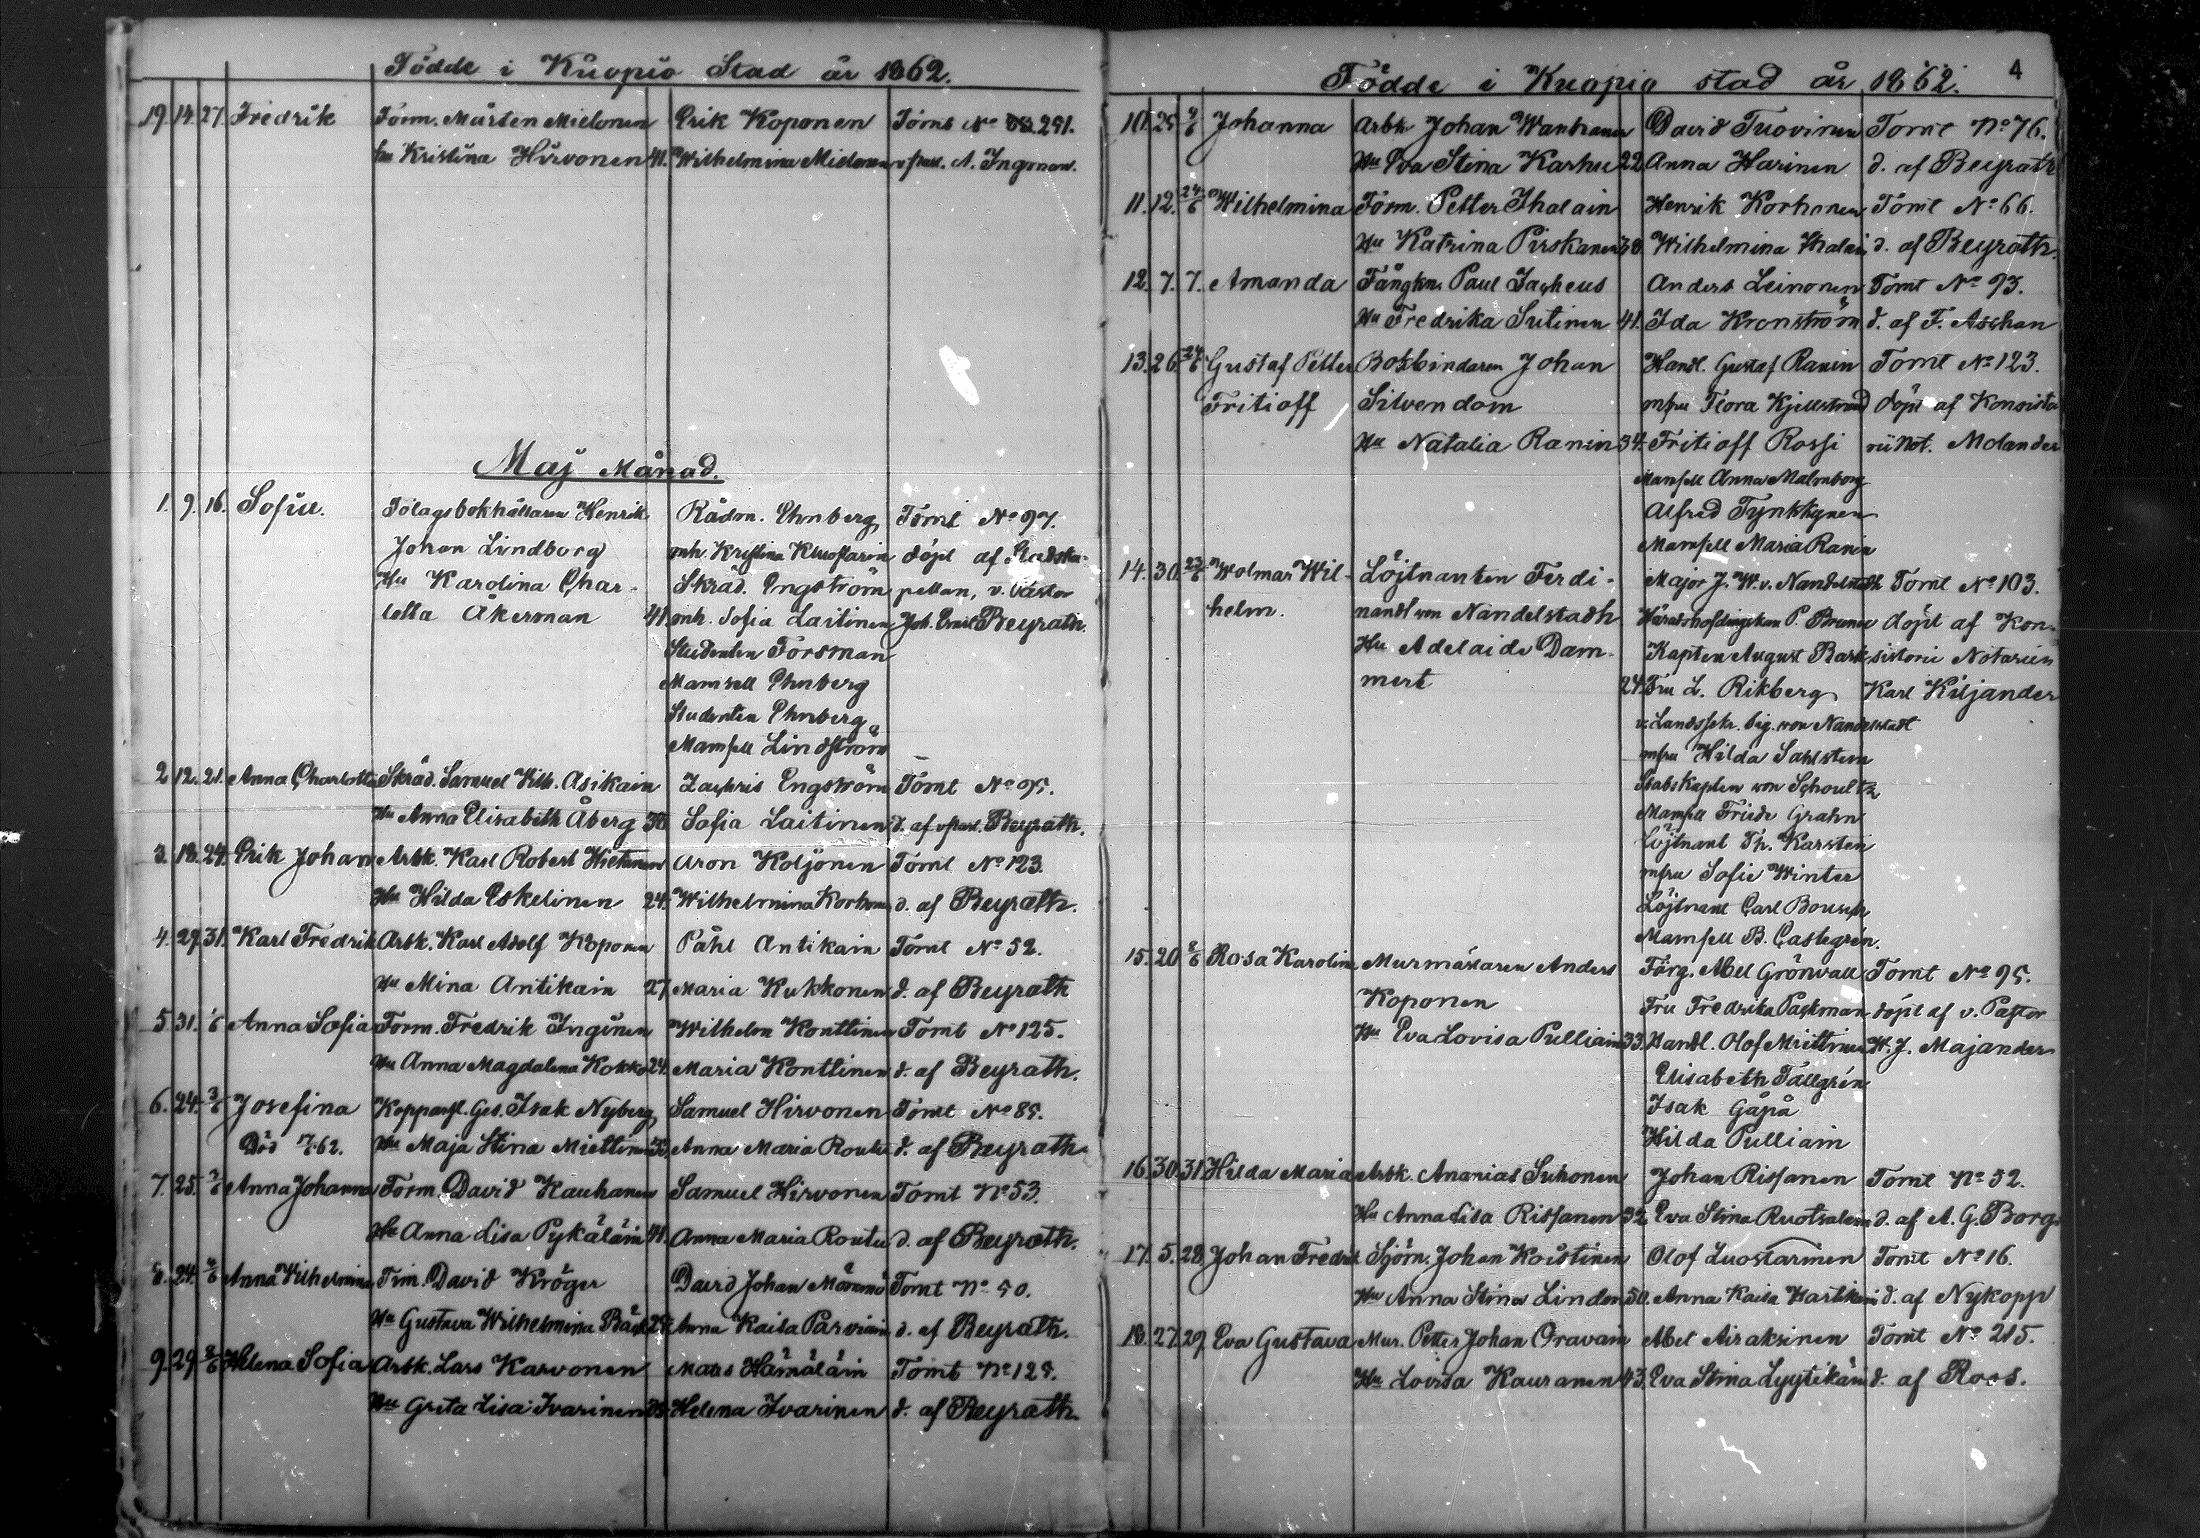 Födde i Kuopio Stad år 1862.
19. 14. 27. Fredrik Förm. Mårten Mielonen Erik Koponen Tomt No 291.
hu Kristina Hirvonen 41. Wilhelmina Mielonen v past. A. Ingman.
Maj Månad.
1. 9. 16. Sofia. Bolagsbokhållaren Henrik Rådm. Ehnberg Tomt No 97.
Johan Lindborg mh. Kristina döpt af Stadska-
Hu Karolina Char- Skräd. Engström pellan, v. Pastor
lotta Åkerman 41. mh. Sofia Laitinen Joh. Emil Beyrath.
Studenten Forsman
Mamsell Ehnberg
Studenten Ehnberg
Mamsell Lindström
2. 12. 21. Anna Charlotta Skräd. Samuel Vilh. Asikain Zachris Engström Tomt No 95.
Hu Anna Elisabeth Åberg 38 Sofia Laitinen d. af v past. Beyrath.
3. 18. 24. Erik Johan Arbk. Karl Robert Hietanen Aron Koljonen Tomt No 123.
Hu Hilda Eskelinen 24. Wilhelmina Korhonen d. af Beyrath.
4. 29. 31. Karl Fredrik Arbk. Karl Adolf Koponen Påhl Antikain Tomt No 52.
Hu Mina Antikain 27 Maria Kukkonen d. af Beyrath
5. 31. 1/6 Anna Sofia Form. Fredrik Inginen Wilhelm Konttinen Tomt No 125.
Hu Anna Magdalena Kokko 24. Maria Konttinen d. af Beyrath.
6. 24. 3/6 Josefina Kopparsl. Ges. Isak Nyberg Samuel Hirvonen Tomt No 85.
Död 62. Hu Maja Stina Miettinen Anna Maria Routu d. af Beyrath
7. 25. Anna Johanna Form David Kauhanen Samuel Hirvonen Tomt No 53.
Hu Anna Lisa Pykäläin 41. Anna Maria Routu d. af Beyrath.
8. 24. Anna Vilhelmina Tim. David Kröger David Johan Tomt No 50.
Hu Gustava Wilhelmina Anna Kaisa Parviain d. af Beyrath.
9. 29. 8/6 Helena Sofia Arbk. Lars Karvonen Mats Hämäläin Tomt No 125.
Hu Greta Lisa Ivarinen Helena Ivarinen d. af Beyrath.
Födde i Kuopio stad år 1862. 4
10. 25. 9/6 Johanna Arbk Johan Wantanen David Tuovinen Tomt No 76.
Hu Eva Stina Karhu 22. Anna Harinen d. af Beyrath
11. 12. 24/6 Wilhelmina Form. Petter Ihalain Henrik Korhonen Tomt No 66.
Hu Katrina Pirskanen 38. Wilhelmina Ihalain d. af Beyrath.
12. 7. 7. Amanda Fångkn. Paul Zacheus Anders Leinonen Tomt No 93.
Hu Fredrika Sutinen 41. Ida Kronström d. af F. Aschan
13. 26. 24/6 Gustaf Petter Bokbindaren Johan Handl. Gustaf Ranin Tomt No 123.
Fritioff Silvendom mfru Flora Kjellstrand döpt af Konsisto
Hu Natalia Ranin 34. Fritioff Rossi rii Not. Molander
Mamsell Anna Malmborg
Alfred Tynkkynen
Mamsell Maria Ranin
14. 30. 23/6 Wolmar Wil- Löjtnanten Ferdi- Major J. W. v. Nandelstadh Tomt No 103.
helm. nand von Nandelstadh Häradshöfdingskan P. Brunou döpt af Kon-
Hu Adelaide Dam- Kapten August Bark sistorii Notarien
mert 24. Fru L. Rikberg Karl Kiljander
v. Landssekr. Sig. von Nandelstadt
mfru Hilda Sahlstein
Stabskapten von Schoultz
Mamsell Friede Grahn
Löjtnant Th. Karsten
mfru Sofie Winter
Löjtnant Carl
Mamsell B. Castegrén.
15. 20. 8/6 Rosa Karolina Murmästaren Anders Färg. Abel Grönvall Tomt No 95.
Koponen Fru Fredrika Packman döpt af v. Pastor
Hu Eva Lovisa Pulliain 33. Handl. Olof Miettinen W. J. Majander
Elisabeth Tallgrén
Isak Gåpå
Hilda Pulliain
16. 30. 31. Hilda Maria Arbk. Ananias Suhonen Johan Rissanen Tomt No 52.
Hu Anna Lisa Rissanen 32. Eva Stina Ruotsalain d. af A. G. Borg
17. 5. 28. Johan Fredrik Sjöm. Johan Koistinen Olof Luostarinen Tomt No 16.
Hu Anna Stina Linden 30. Anna Kaisa Hartikain d. af Nykopp
18. 27. 29. Eva Gustava Mur. Petter Johan Oravain Abel Airaksinen Tomt No 215.
Hu Lovisa Kauranen 43. Eva Stina Lyytikäin d. af Roos.